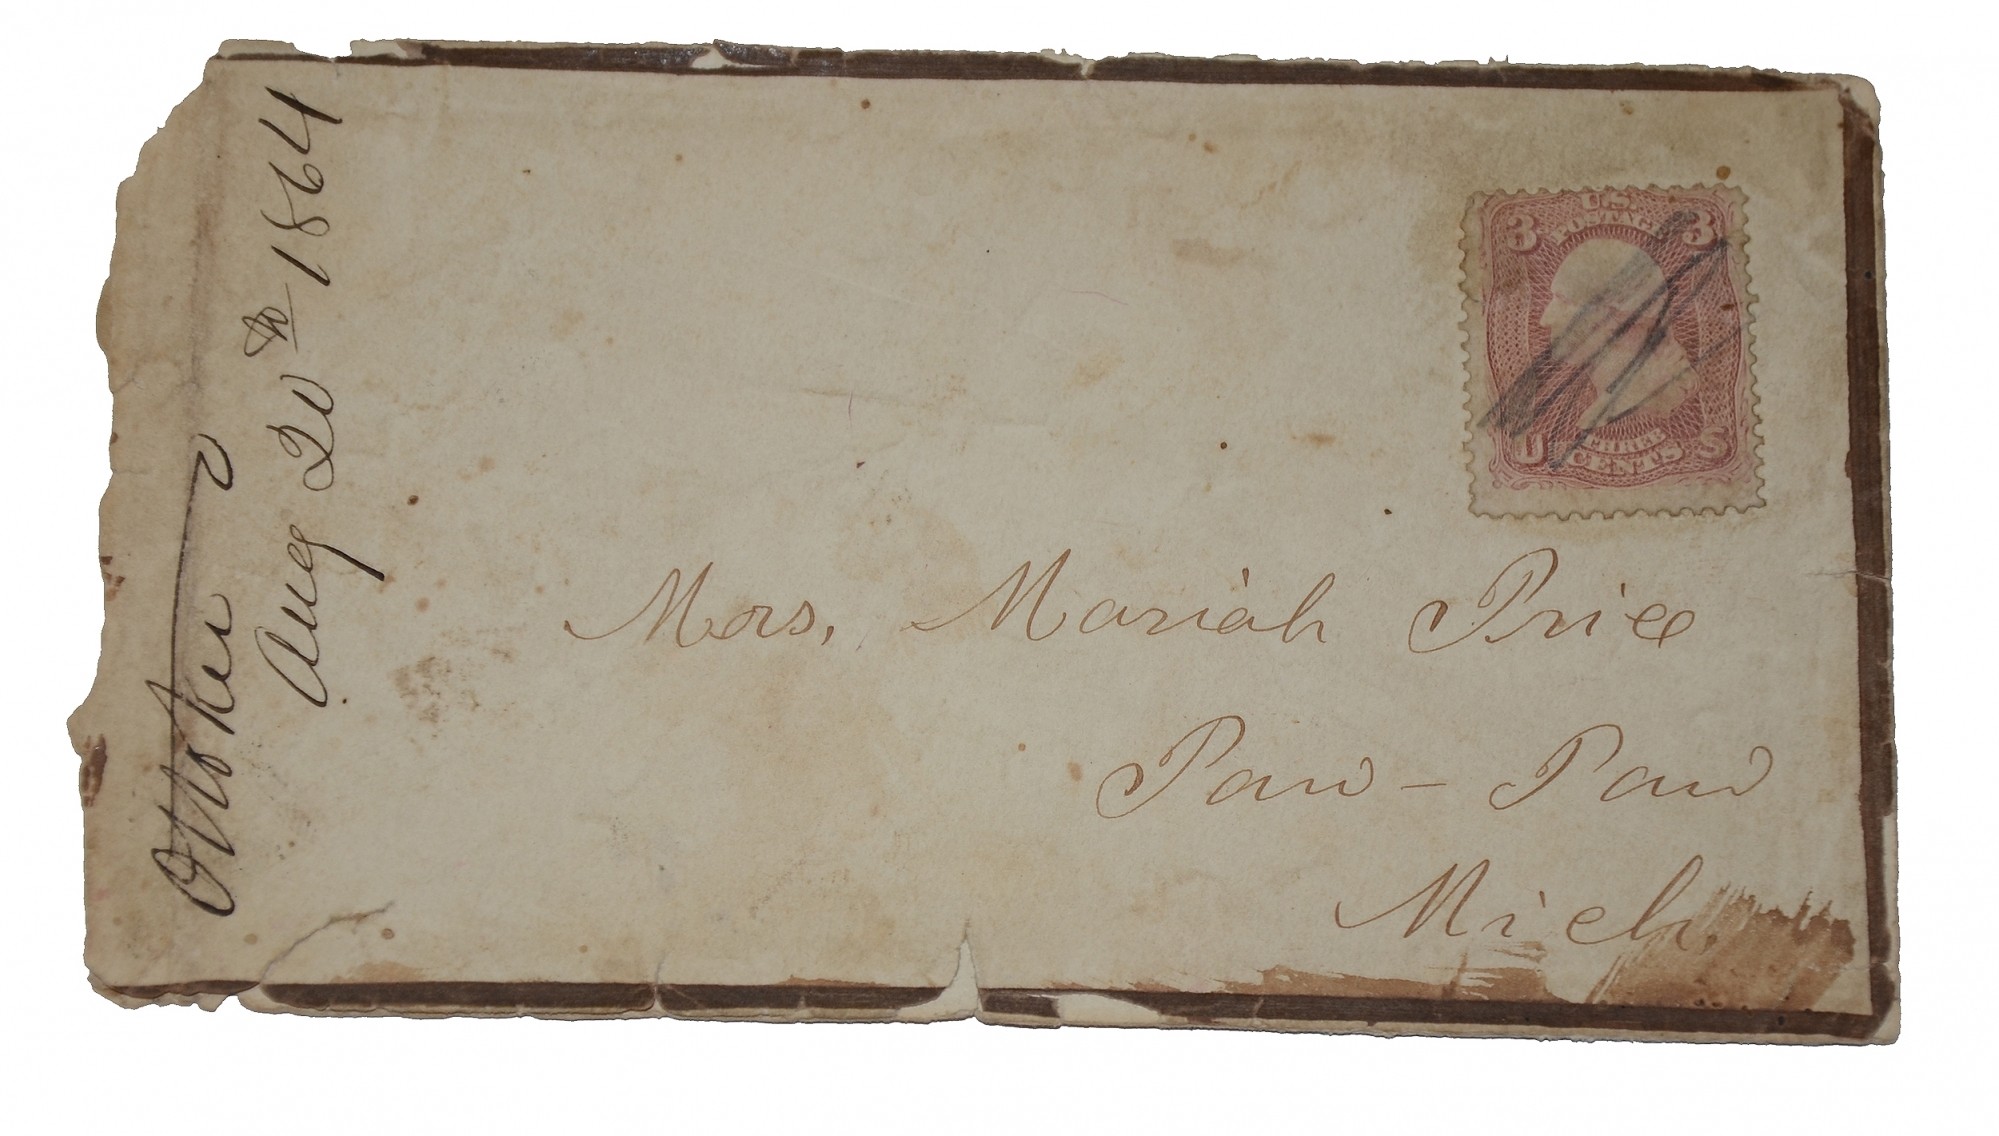 Aug 20th 1864
3 U.S. 3
POSTAGE
THREE
U CENTS S
Mrs. Mariah Price
Paw - Paw
Mich.